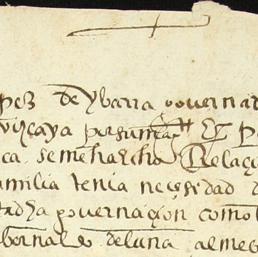 pez de ybarra governad
vizcaya por su mag
ca se me ha hecho Relaçi
familia tenia neçessidad d
dha governaçion como
bernal de luna al me